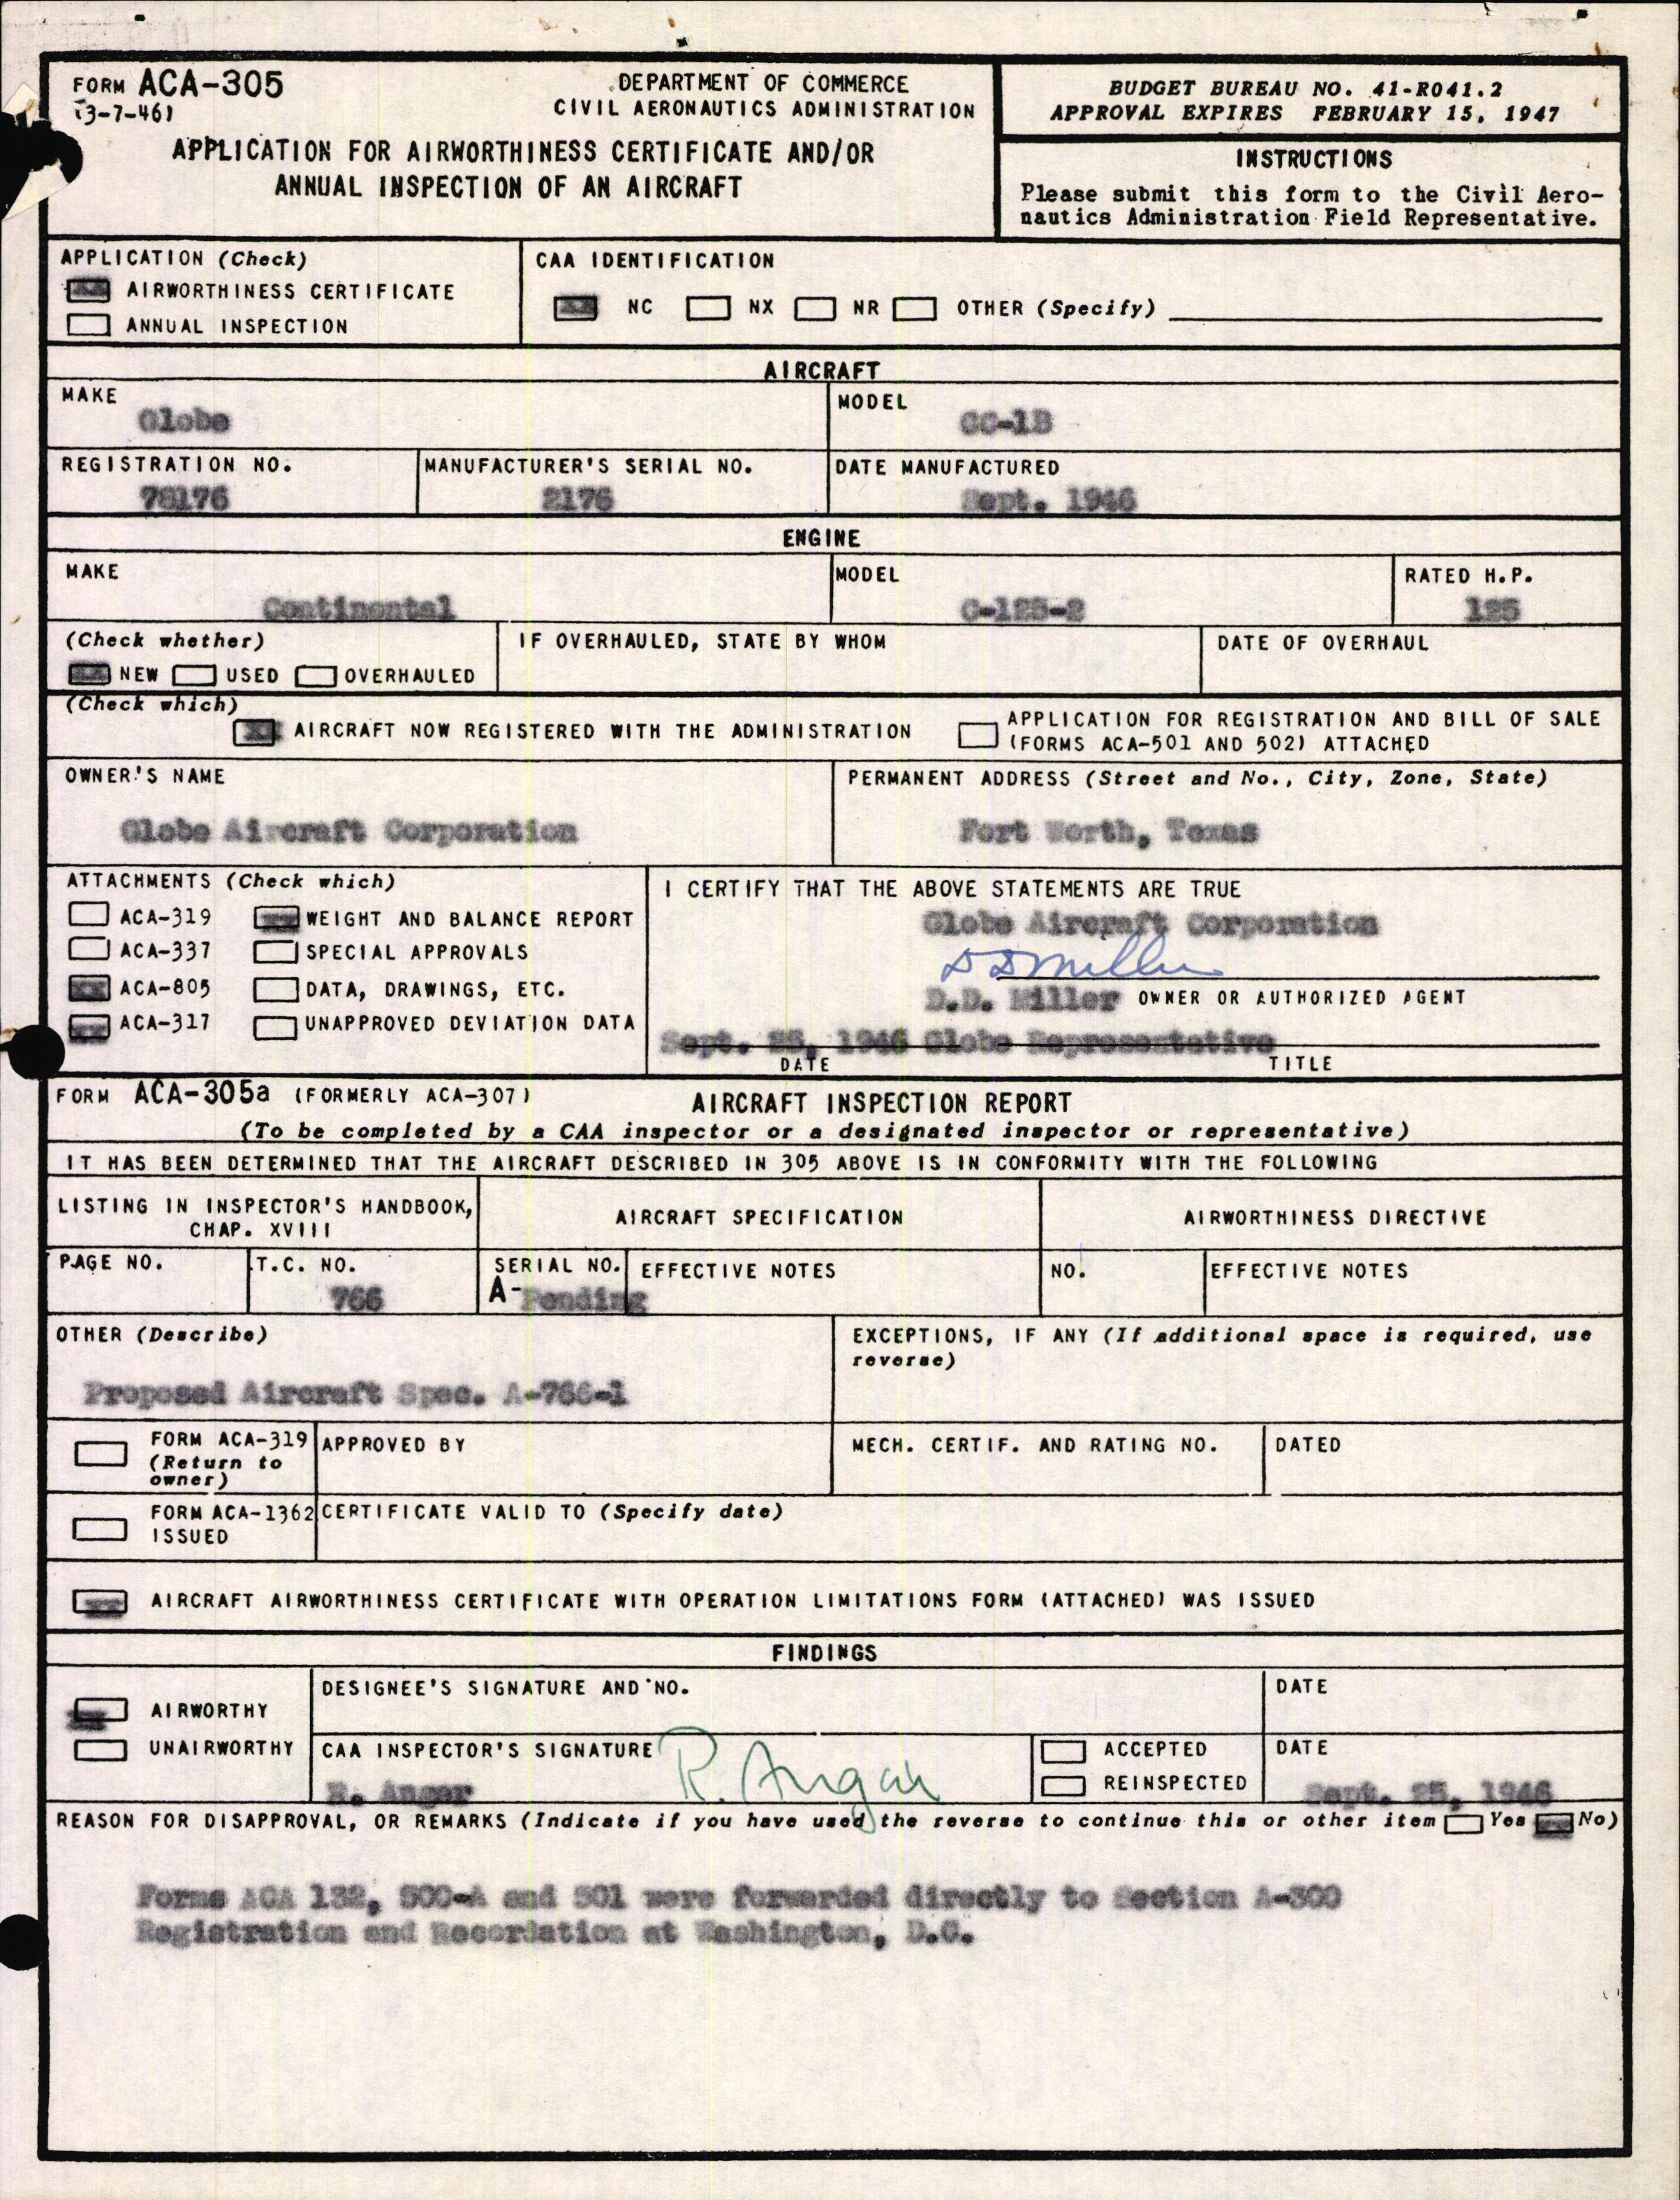 FORM ACA-305
(3-7-46)
DEPARTMENT OF COMMERCE
CIVIL AERONAUTICS ADMINISTRATION
APPLICATION FOR AIRWORTHINESS CERTIFICATE AND/OR
ANNUAL INSPECTION OF AN AIRCRAFT
BUDGET BUREAU NO. 41-R041.2
APPROVAL EXPIRES FEBRUARY 15, 1947
INSTRUCTIONS
Please submit this form to the Civil Aero-
nautics Administration Field Representative.
APPLICATION (Check)
AIRWORTHINESS CERTIFICATE
ANNUAL INSPECTION
CAA IDENTIFICATION
NC NX NR OTHER (Specify)
AIRCRAFT
MAKE
Globe
MODEL
GC-1B
REGISTRATION NO.
78176
MANUFACTURER'S SERIAL NO.
2176
DATE MANUFACTURED
Sept. 1946
ENGINE
MAKE
Continental
MODEL
C-125-2
RATED H.P.
125
(Check whether)
NEW USED OVERHAULED
IF OVERHAULED, STATE BY WHOM
DATE OF OVERHAUL
(Check which)
AIRCRAFT NOW REGISTERED WITH THE ADMINISTRATION
APPLICATION FOR REGISTRATION AND BILL OF SALE
(FORMS ACA-501 AND 502) ATTACHED
OWNER'S NAME
Globe Aircraft Corporation
PERMANENT ADDRESS (Street and No., City, Zone, State)
Fort Worth, Texas
ATTACHMENTS (Check which)
ACA-319 WEIGHT AND BALANCE REPORT
ACA-337 SPECIAL APPROVALS
ACA-805 DATA, DRAWINGS, ETC.
ACA-317 UNAPPROVED DEVIATION DATA
I CERTIFY THAT THE ABOVE STATEMENTS ARE TRUE
Globe Aircraft Corporation
D D Miller
D.D. Miller OWNER OR AUTHORIZED AGENT
Sept. 25, 1946 Globe Representative
DATE TITLE
FORM ACA-305a (FORMERLY ACA-307)
AIRCRAFT INSPECTION REPORT
(To be completed by a CAA inspector or a designated inspector or representative)
IT HAS BEEN DETERMINED THAT THE AIRCRAFT DESCRIBED IN 305 ABOVE IS IN CONFORMITY WITH THE FOLLOWING
LISTING IN INSPECTOR'S HANDBOOK,
CHAP. XVIII
AIRCRAFT SPECIFICATION
AIRWORTHINESS DIRECTIVE
PAGE NO.
T.C. NO.
766
SERIAL NO.
A-Pending
EFFECTIVE NOTES
NO.
EFFECTIVE NOTES
OTHER (Describe)
Proposed Aircraft Spec. A-766-1
EXCEPTIONS, IF ANY (If additional space is required, use
reverse)
FORM ACA-319
(Return to
owner)
APPROVED BY
MECH. CERTIF. AND RATING NO.
DATED
FORM ACA-1362
ISSUED
CERTIFICATE VALID TO (Specify date)
AIRCRAFT AIRWORTHINESS CERTIFICATE WITH OPERATION LIMITATIONS FORM (ATTACHED) WAS ISSUED
FINDINGS
AIRWORTHY
UNAIRWORTHY
DESIGNEE'S SIGNATURE AND NO.
DATE
CAA INSPECTOR'S SIGNATURE
R. Angar
R. Anger
ACCEPTED
REINSPECTED
DATE
Sept. 25, 1946
REASON FOR DISAPPROVAL, OR REMARKS (Indicate if you have used the reverse to continue this or other item Yes No)
Forms ACA 132, 500-A and 501 were forwarded directly to Section A-300
Registration and Recordation at Washington, D.C.